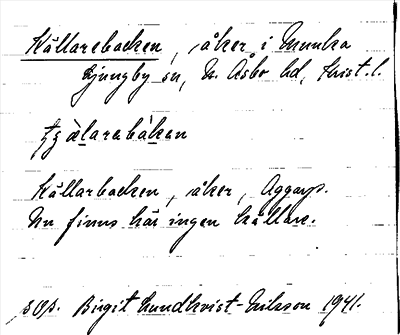 Källarebacken, åker i Munka
Ljungby sn, N. Åsbo hd, Krist. l.
källarabakan
Källarbacken, åker, Aggarp.
Nu finns här ingen källare.
Birgit Lundkvist-Nilsson 1941.